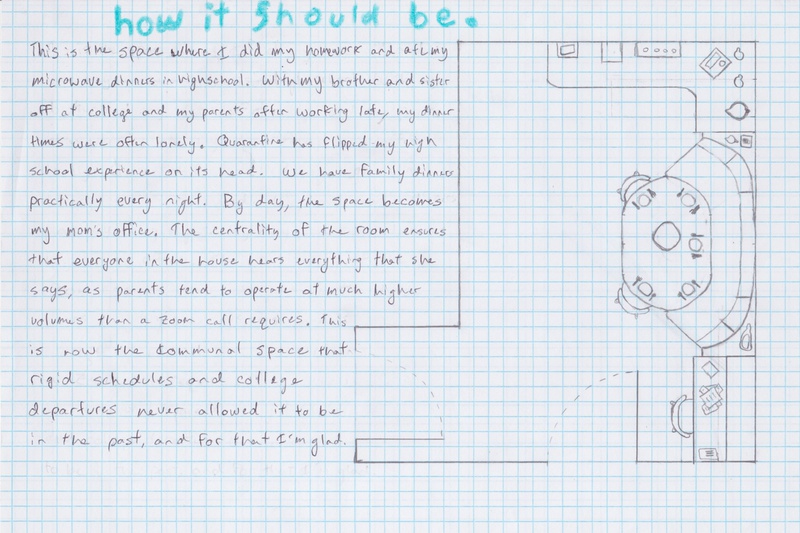 how it should be.
This is the space where I did my homework and ate my
microwave dinners in highschool. With my brother and sister
off at college and my parents often working late, my dinner
times were often lonely. Quarantine has flipped my high
school experience on its head. We have family dinners
practically every night. By day, the space becomes
my mom's office. The centrality of the room ensures
that everyone in the house hears everything that she
says, as parents tend to operate at much higher
volumes than a zoom call requires. This
is now the communal space that
rigid schedules and college
departures never allowed it to be
in the past, and for that I'm glad.